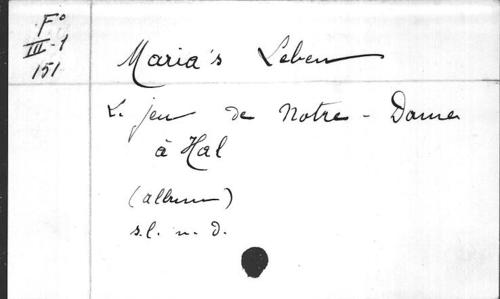 F°
III-1
151
Maria's Leben
L. jeu de Notre-Dame
à Hal
(album)
s.l. n. d.